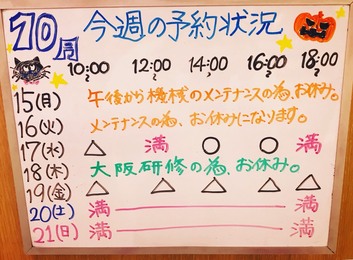 10月 今週の予約状況
10:00〜 12:00〜 14:00〜 16:00〜 18:00〜
15(月) 午後から機械のメンテナンスの為、お休み。
16(火) メンテナンスの為、お休みになります。
17(水) △ 満 ○ ○ 満
18(木) 大阪研修の為、お休み。
19(金) △ △ △ △ △
20(土) 満 満
21(日) 満 満